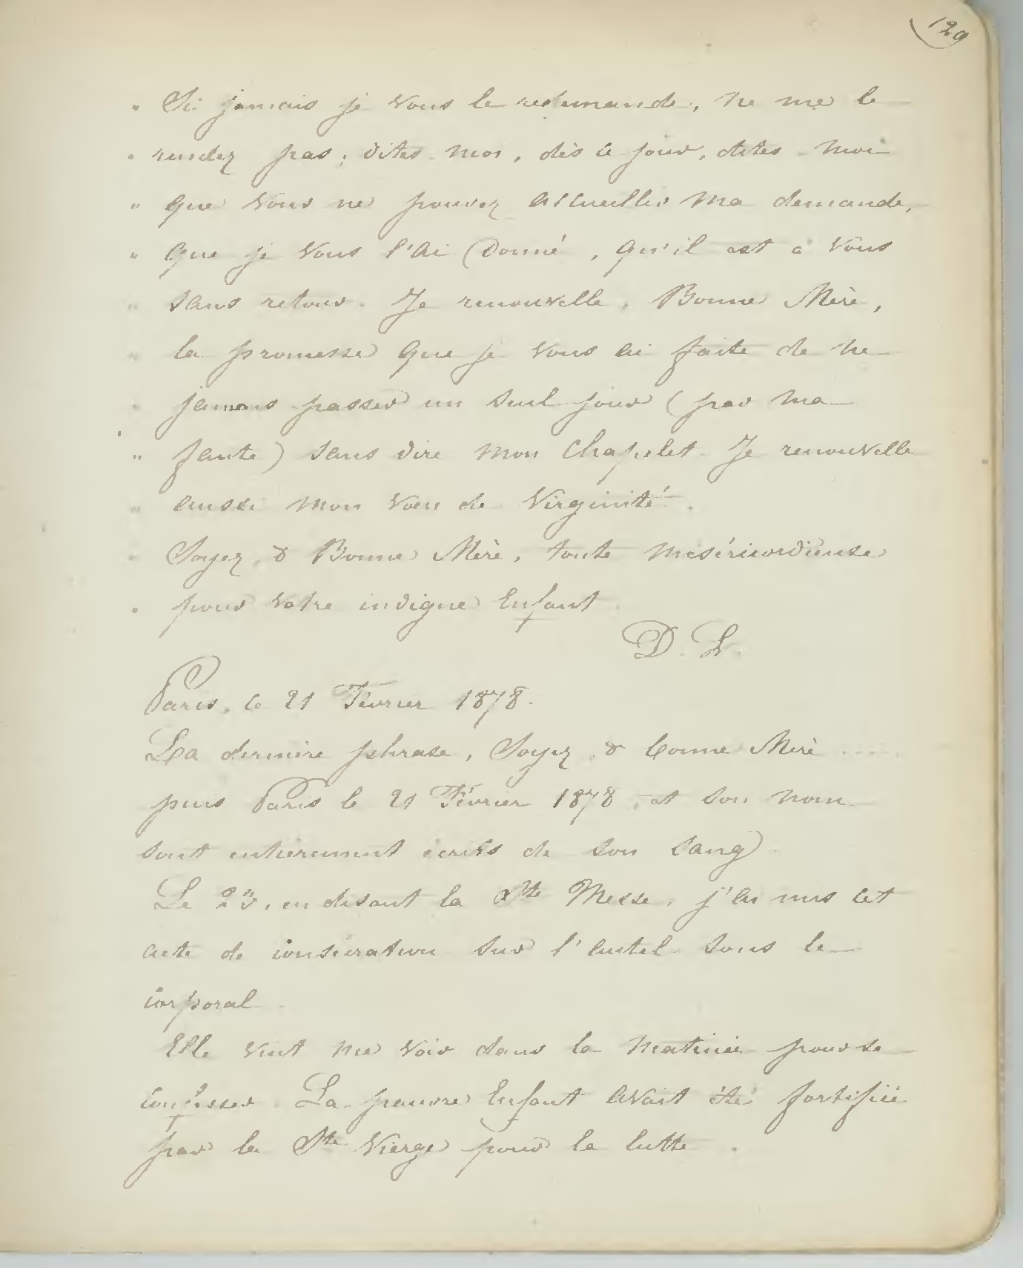 129
" Si jamais je vous le redemande, ne me le
" rendez pas ; dites-moi, dès ce jour, dites-moi
" que vous ne pouvez accueillir ma demande,
" que je vous l'ai donné, qu'il est à vous
" sans retour. Je renouvelle, Bonne Mère,
" la promesse que je vous ai faite de ne
" jamais passer un seul jour (par ma
" faute) sans dire mon Chapelet. Je renouvelle
" aussi mon voeu de Virginité.
" Soyez, ô Bonne Mère, toute miséricordieuse
" pour votre indigne Enfant.
D. L.
Paris, le 21 Février 1878.
La dernière phrase, Soyez, ô bonne Mère .....
puis Paris le 21 Février 1878, et son nom
sont entièrement écrits de son sang.
Le , en disant la Ste Messe, j'ai mis cet
acte de consécration sur l'autel sous le
corporal.
Elle vint me voir dans la matinée pour se
confesser. La pauvre Enfant avait été fortifiée
par la Ste Vierge pour la lutte.